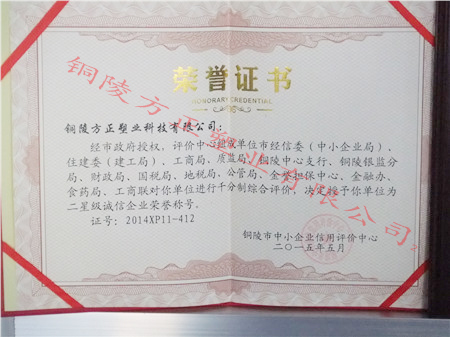 荣誉证书
HONORARY CREDENTIAL
铜陵方正塑业科技有限公司：
经市政府授权，评价中心组成单位市经信委（中小企业局）、
住建委（建工局）、工商局、质监局、铜陵中心支行、铜陵银监分
局、财政局、国税局、地税局、公管局、金誉担保中心、金融办、
食药局、工商联对你单位进行千分制综合评价，决定授予你单位为
二星级诚信企业荣誉称号。
证号：2014XP11-412
铜陵市中小企业信用评价中心
二〇一五年五月
铜陵方正塑业有限公司